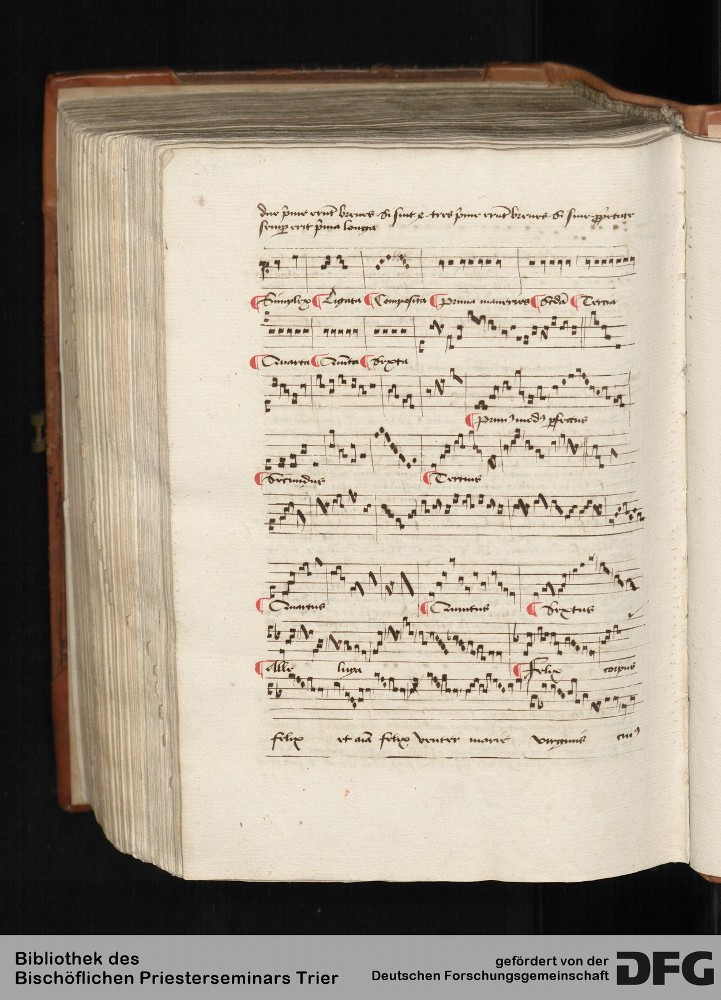 due prime erūt breues Si sint c tres prime erūt breues Si sine
semꝑ erit prima longa
Simplex Ligata Composita Prima maneries Scda Tercia
Quarta Quīta Sexta
Primꝰ modꝰ pfectus
Secundus Tercius
Quartus Quintus Sextus
Alle luya Felix corpus
felix et aīa felix venter marie virginis cuiꝰ
Bibliothek des
Bischöflichen Priesterseminars Trier
gefördert von der
Deutschen Forschungsgemeinschaft DFG